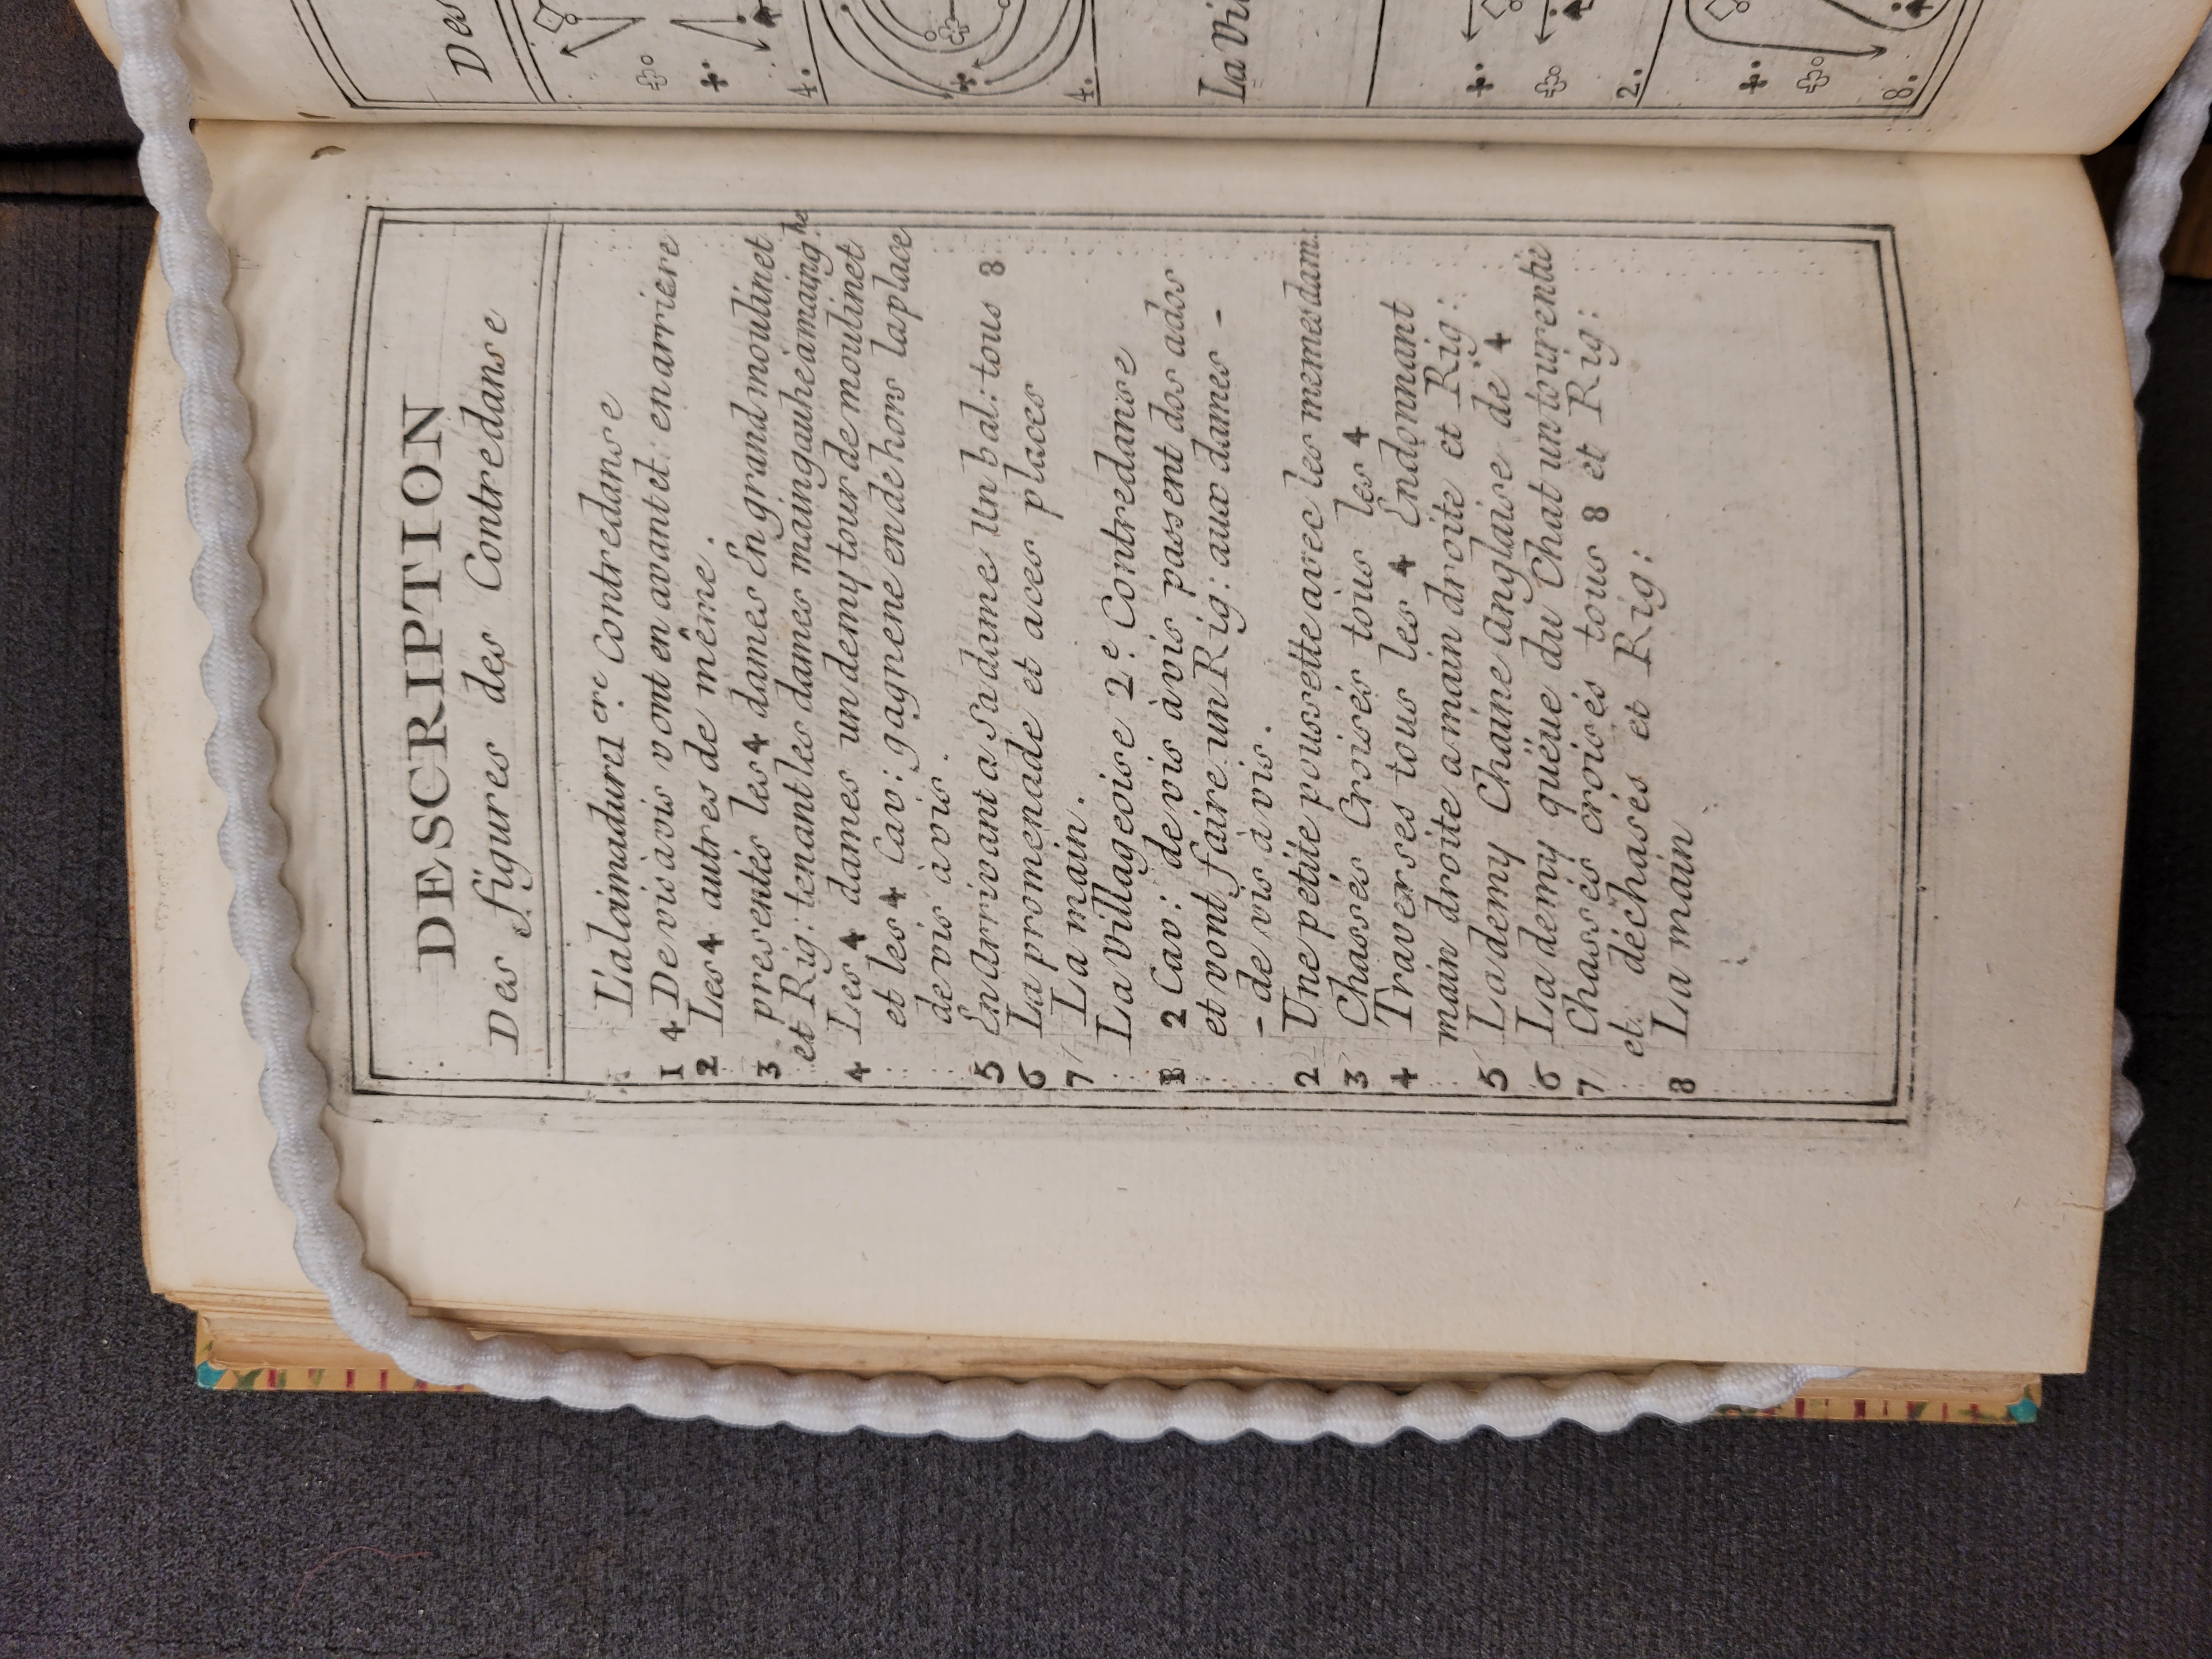 DESCRIPTION
Des figures des Contredanse
L'alaimadurei 1.ere Contredanse
1 4 De vis avis vont en avant et. en arriere
2 Les 4 autres de même.
3 presentés les 4 dames En grand moulinet
et Rig: tenant les dames maingauheamaing.he
4 Les 4 dames un demy tour de moulinet
et les 4 Cav: gagnene en dehors laplace
de vis àvis.
5 En Arrivant a Sadame Un bal: tous 8
6 La promenade et aces places
7 La main.
La Villageoise 2.e Contredanse
1 2 Cav: de vis àvis passent dos ados
et vont faire un Rig: aux dames -
- de vis àvis.
2 Une petite poussette avec les memes dam:
3 Chassés Croisés tous les 4
4 Traverses tous les 4 Endonnant
main droite amain droite et Rig:
5 La demy Chaine Anglaise de 4
6 La demy quëue du Chat un tourentie
7 Chassés croisés tous 8 et Rig:
et. déchasés et Rig:
8 La main
Des
4.
4.
La Vi
2.
8.